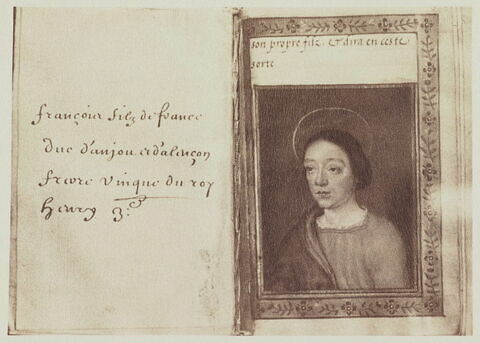 françois filz de france
duc d'anjou et d'alençon
frere unique du roy
Henry 3e
son propre filz. & dira en ceste
sorte